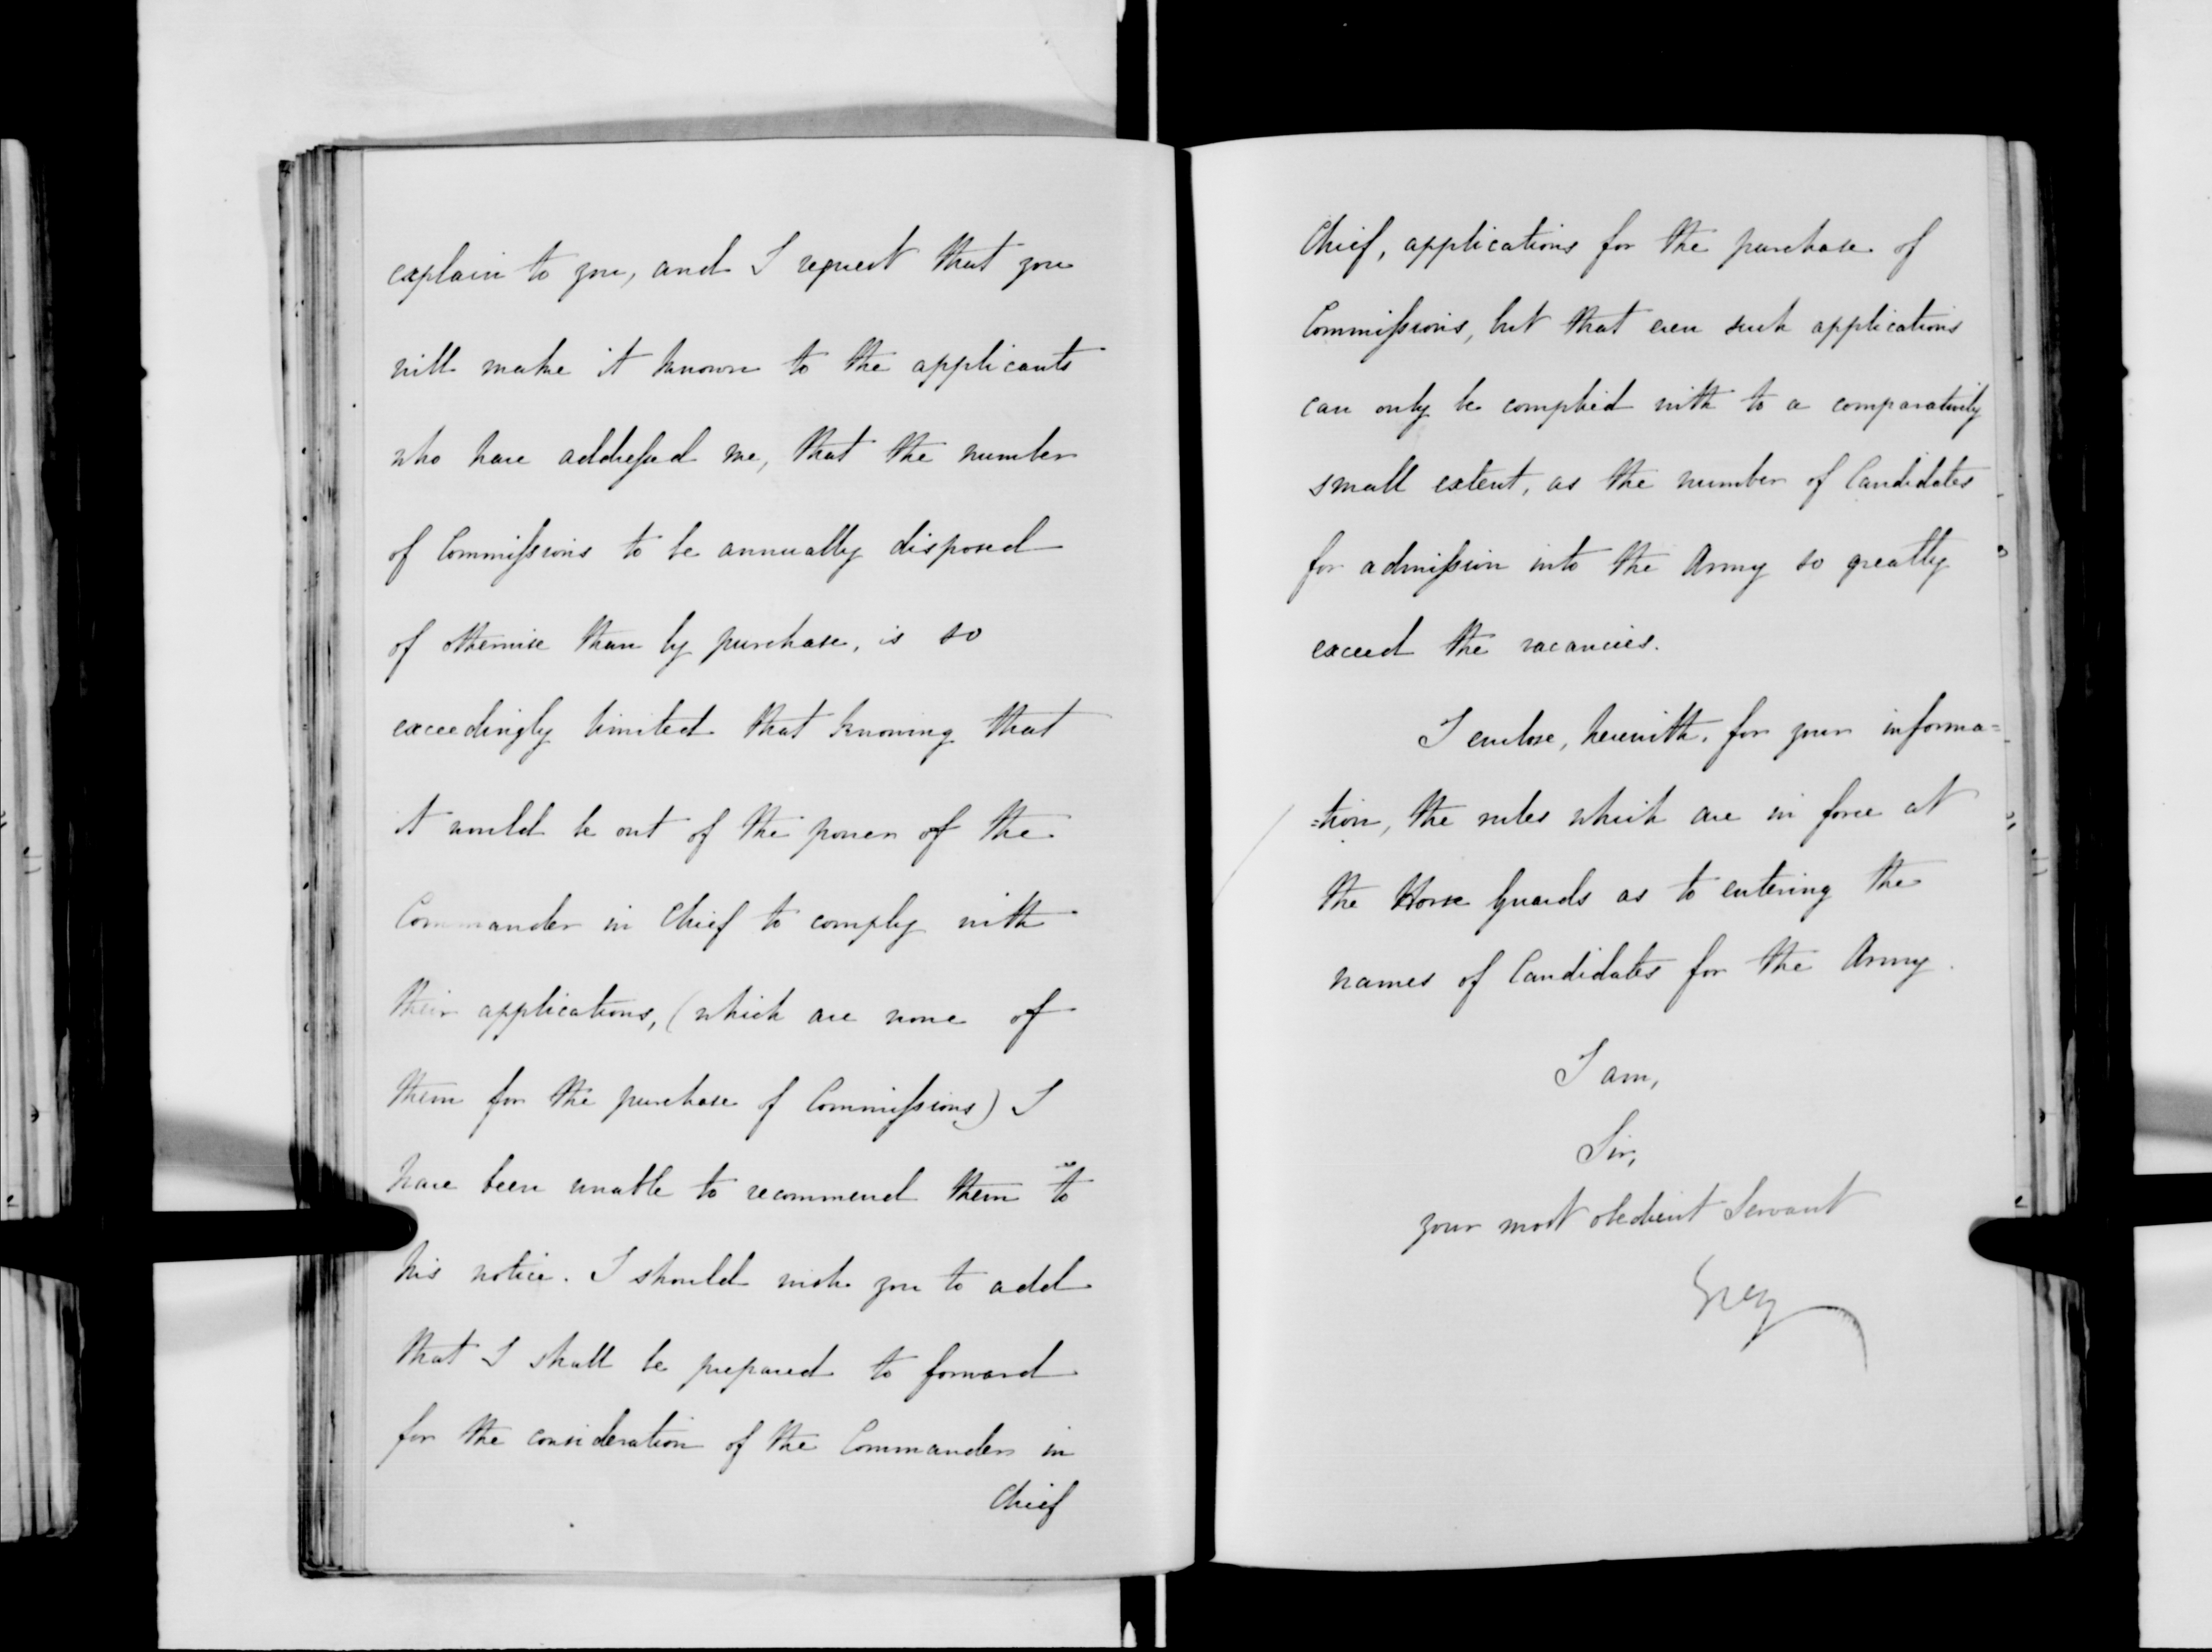 explain to you, and I request that you
will make it known to the applicants
who have addressed me, that the number
of Commissions to be annually disposed
of otherwise than by purchase, is so
exceedingly limited that knowing that
it would be out of the power of the
Commander in Chief to comply with
their applications, (which are none of
them for the purchase of Commissions) I
have been unable to recommend them to
his notice. I should wish you to add
that I shall be prepared to forward
for the consideration of the Commander in
Chief
Chief, applications for the purchase of
Commissions, but that even such applications
can only be complied with to a comparatively
small extent, as the number of Candidates
for admission into the Army so greatly
exceed the vacancies.
I enclose, herewith, for your informa=
=tion, the rules which are in force at
the Horse Guards as to entering the
names of Candidates for the Army.
I am,
Sir,
your most obedient Servant
Grey